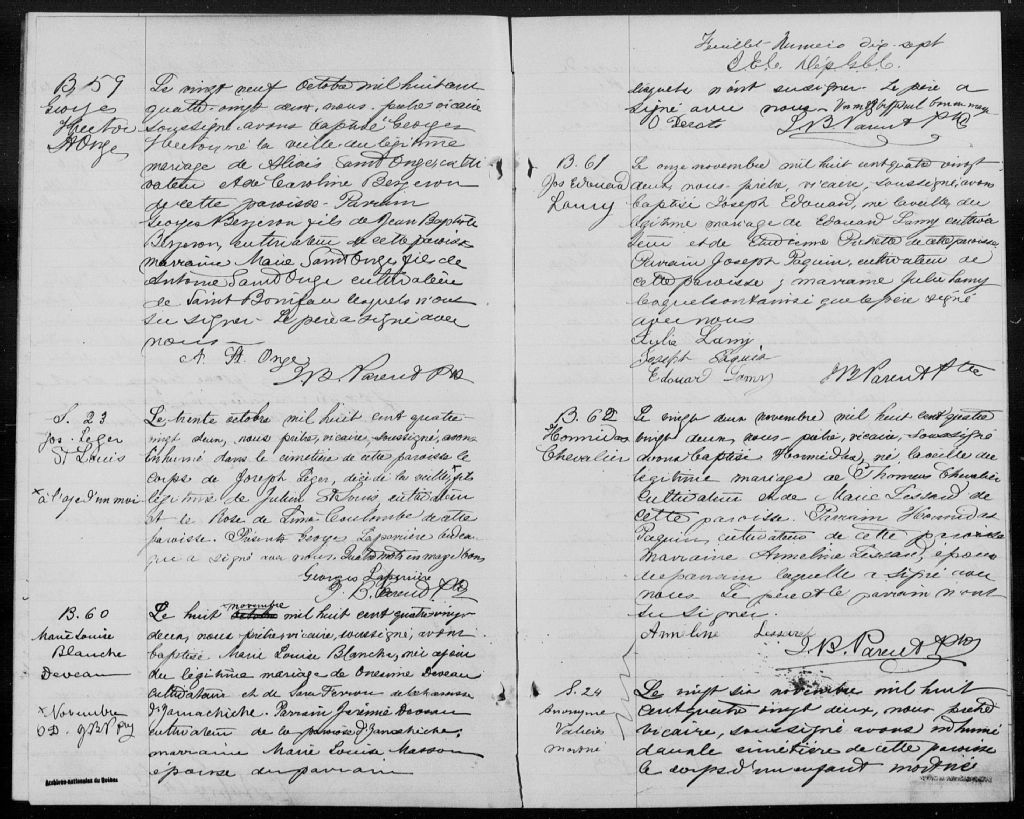 B 59
Georges
Hector
St Onge
Le vingt neuf octobre mil huit cent
quatre-vingt deux, nous, prêtre vicaire
soussigné avons baptisé Georges
Hector né la veille du légitime
mariage de Alexis Saint Onge culti
vateur et de Caroline Bergeron
de cette paroisse. Parrain
Georges Bergeron fils de Jean Baptiste
Bergeron, cultivateur de cette paroisse
marraine Marie Saint Onge fille de
Antoine Saint Onge cultivateur
de Saint Boniface lesquels n'ont
su signer. Le père a signé avec
nous
A. St. Onge
J.B. Parent Ptre
S. 23
Jos. Léger
St Louis
x à l'age d'un moi
Le trente octobre mil huit cent quatre-
vingt deux, nous prêtre, vicaire, soussigné, avons
inhumé dans le cimetière de cette paroisse le
corps de Joseph Léger, décédé la veille x fils
légitime de Julien St Louis cultivateur
et de Rose de Lima Coulombe de cette
paroisse. Présents George Laperrière bedeau
qui a signé avec nous. Quatre mots en marge bons
Georges Laperrière
J. B. Parent Ptre
B. 60
Marie Louise
Blanche
Deveau
x Novembre
O D. J B P ptre
Le huit octobre novembre mil huit cent quatre vingt
deux, nous prêtre, vicaire, soussigné, avons
baptisé Marie Louise Blanche, née ce jour
du légitime mariage de Onesime Deveau
cultivateur et de Sara Ferron de la paroisse
d'Yamachiche. Parrain Jérémie Deveau
cultivateur de la paroisse d'Yamachiche,
marraine Marie Louise Masson
épouse du parrain
Archives nationales du Québec
Feuillet Numero dix-sept
lesquels n'ont su signer. Le père a
signé avec nous.
O Desots
J B Parent Ptre
B. 61
Jos Edouard
Lamy
Le onze novembre mil huit cent quatre vingt
deux, nous prêtre, vicaire, soussigné, avons
baptisé Joseph Edouard, né la veille, du
légitime mariage de Edouard Lamy cultiva
teur et de Eudoxime Pichette de cette paroisse
Parrain Joseph Paquin, cultivateur de
cette paroisse; marraine Julie Lamy
lesquels ont ainsi que le père signé
avec nous
Julie Lamy
Joseph Paquin
Edouard Lamy
J B Parent Ptre
B. 62
Hormidas
Chevalier
Le vingt deux novembre mil huit cent quatre
vingt deux, nous prêtre, vicaire, soussigné
avons baptisé Hormidas, né la veille du
légitime mariage de Thomas Chevalier
cultivateur et de Marie Lessard de
cette paroisse. Parrain Hormidas
Paquin, cultivateur de cette paroisse
marraine Armeline Lessard, épouse
du parrain laquelle a signé avec
nous. Le père et le parrain n'ont
su signer.
Armeline Lessard
J.B. Parent Ptre
S. 24
Anonyme
mort né
Le vingt six novembre mil huit
cent quatre vingt deux, nous prêtre
vicaire, soussigné avons inhumé
dans le cimétière de cette paroisse
le corps d'un enfant mort né